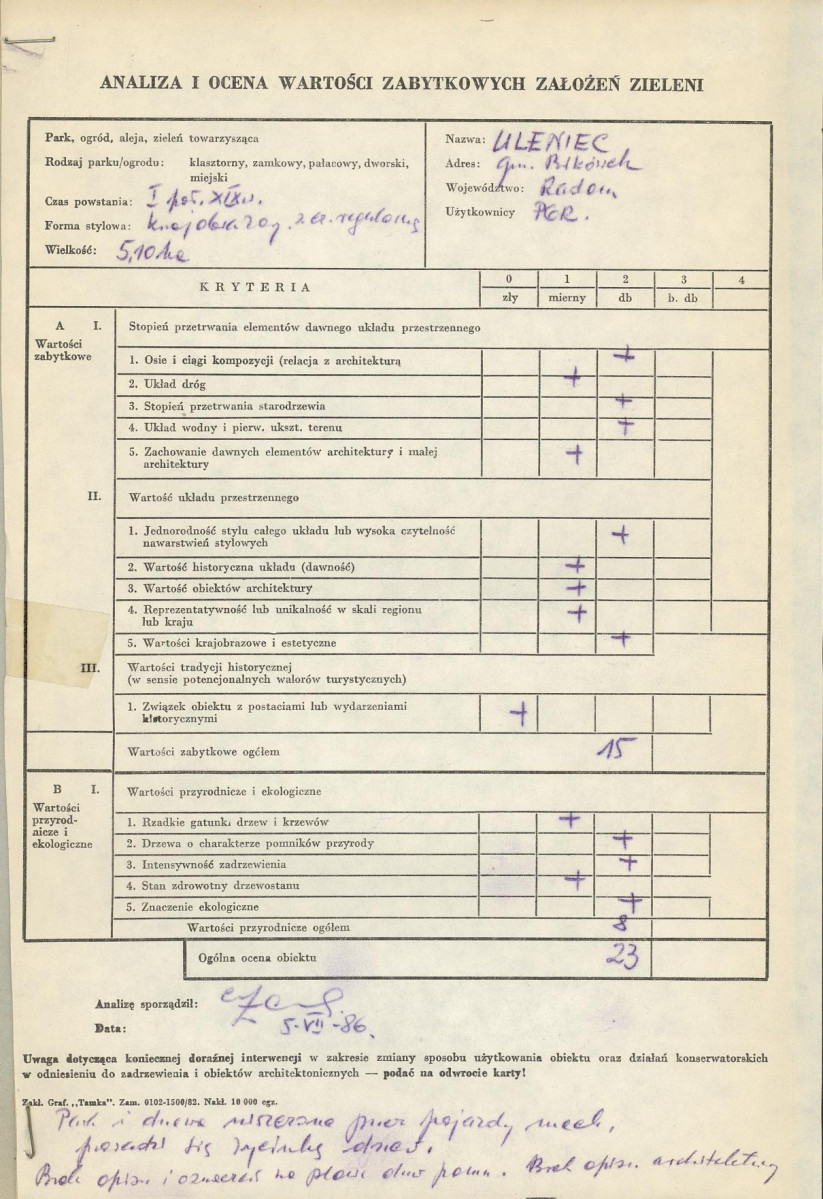 ANALIZA I OCENA WARTOŚCI ZABYTKOWYCH ZAŁOŻEŃ ZIELENI
Park, ogród, aleja, zieleń towarzysząca
Rodzaj parku/ogrodu: klasztorny, zamkowy, pałacowy, dworski,
miejski
Czas powstania: I poł. XIX w.
Forma stylowa: krajobrazowy. z el. regularnym
Wielkość: 5,10 ha
Nazwa: ULENIEC
Adres: gm.
Województwo: Radom
Użytkownicy PGR.
KRYTERIA
0 1 2 3 4
zły mierny db b. db
A I. Stopień przetrwania elementów dawnego układu przestrzennego
Wartości
zabytkowe
1. Osie i ciągi kompozycji (relacja z architekturą +
2. Układ dróg +
3. Stopień przetrwania starodrzewia +
4. Układ wodny i pierw. ukszt. terenu +
5. Zachowanie dawnych elementów architektury i małej +
architektury
II. Wartość układu przestrzennego
1. Jednorodność stylu całego układu lub wysoka czytelność +
nawarstwień stylowych
2. Wartość historyczna układu (dawność) +
3. Wartość obiektów architektury +
4. Reprezentatywność lub unikalność w skali regionu +
lub kraju
5. Wartości krajobrazowe i estetyczne +
III. Wartości tradycji historycznej
(w sensie potencjonalnych walorów turystycznych)
1. Związek obiektu z postaciami lub wydarzeniami +
historycznymi
Wartości zabytkowe ogółem 15
B I. Wartości przyrodnicze i ekologiczne
Wartości
przyrod-
nicze i
ekologiczne
1. Rzadkie gatunki drzew i krzewów +
2. Drzewa o charakterze pomników przyrody +
3. Intensywność zadrzewienia +
4. Stan zdrowotny drzewostanu +
5. Znaczenie ekologiczne +
Wartości przyrodnicze ogółem 8
Ogólna ocena obiektu 23
Analizę sporządził:
Data: 5-VII-86.
Uwaga dotycząca koniecznej doraźnej interwencji w zakresie zmiany sposobu użytkowania obiektu oraz działań konserwatorskich
w odniesieniu do zadrzewienia i obiektów architektonicznych — podać na odwrocie karty!
Zakł. Graf. „Tamka". Zam. 0102-1500/82. Nakł. 10 000 egz.
Park i drzewa niszczone przez pojazdy mech,
się wycinkę drzew.
Brak opisu i oznaczeń na planie drzew pomn. Brak opisu architektury